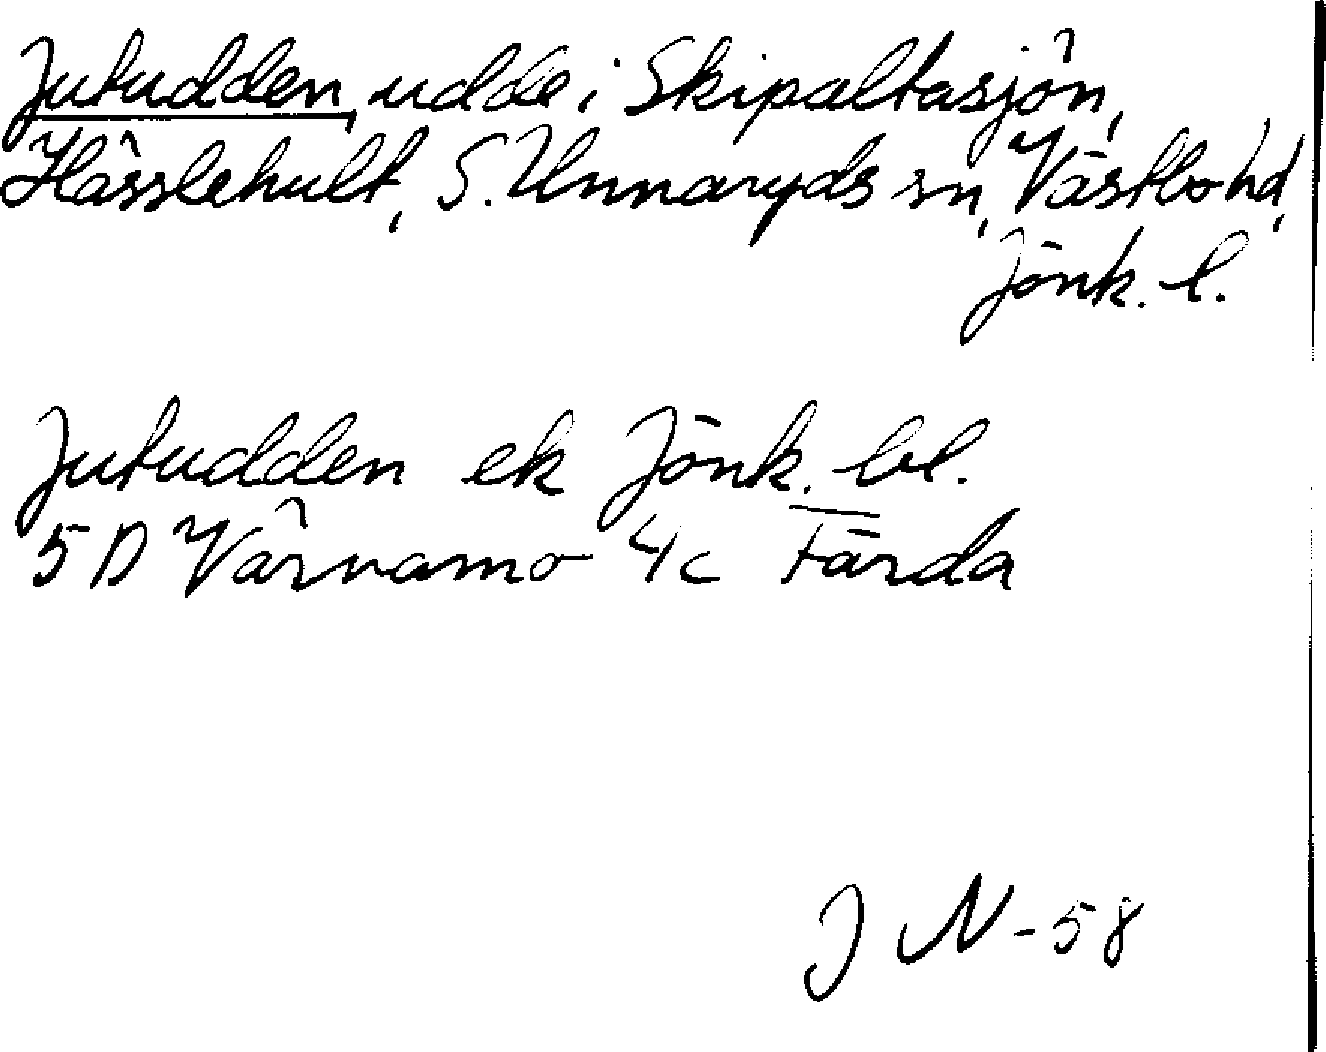 Jutudden, udde i Skipaltasjön,
Hässlehult, S. Unnaryds sn, Västbo hd,
Jönk. l.
Jutudden ek Jönk. bl.
5 D Värnamo 4c Färda
J N-58